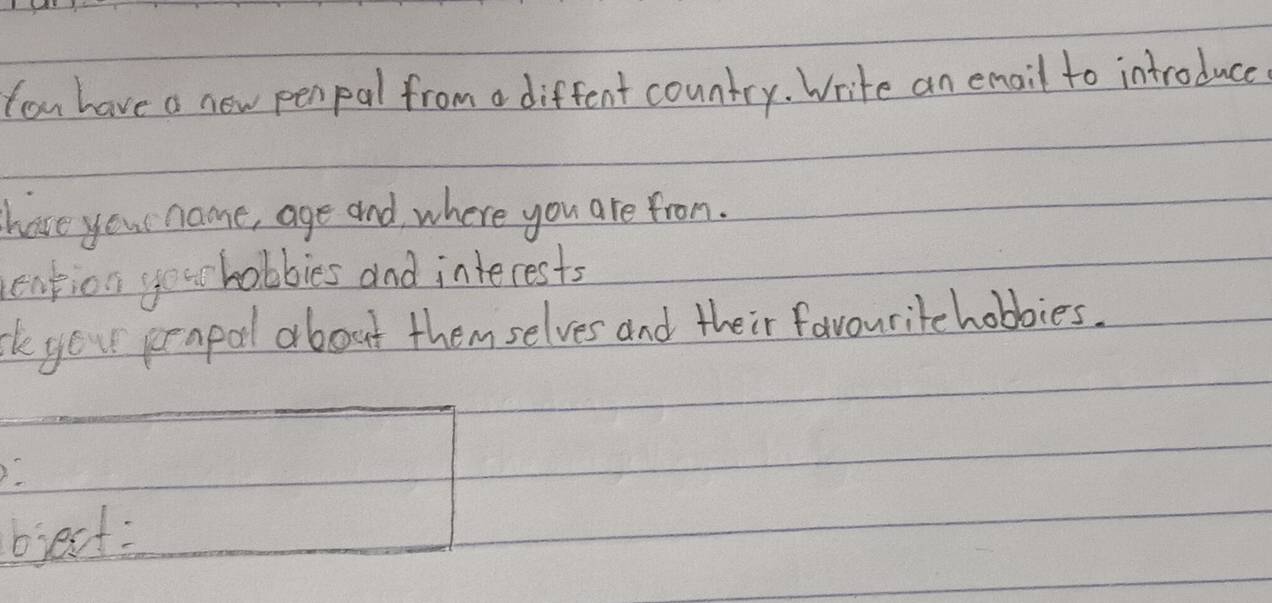 You have a new penpal from a diffent country. Write an email to introduce
hare your name, age and, where you are from.
ention your hobbies and interests
sk your penpal about themselves and their favourite hobbies.
o:
bject: